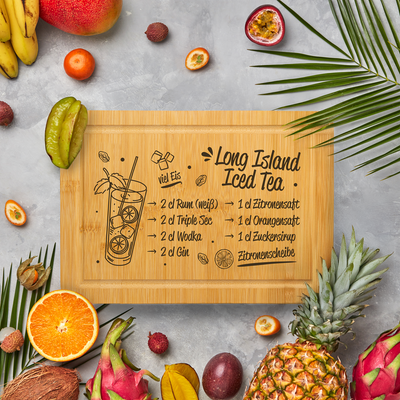 Long Island
Iced Tea
viel Eis
2 cl Rum (weiß)
2 cl Triple Sec
2 cl Wodka
2 cl Gin
1 cl Zitronensaft
1 cl Orangensaft
1 cl Zuckersirup
Zitronenscheibe